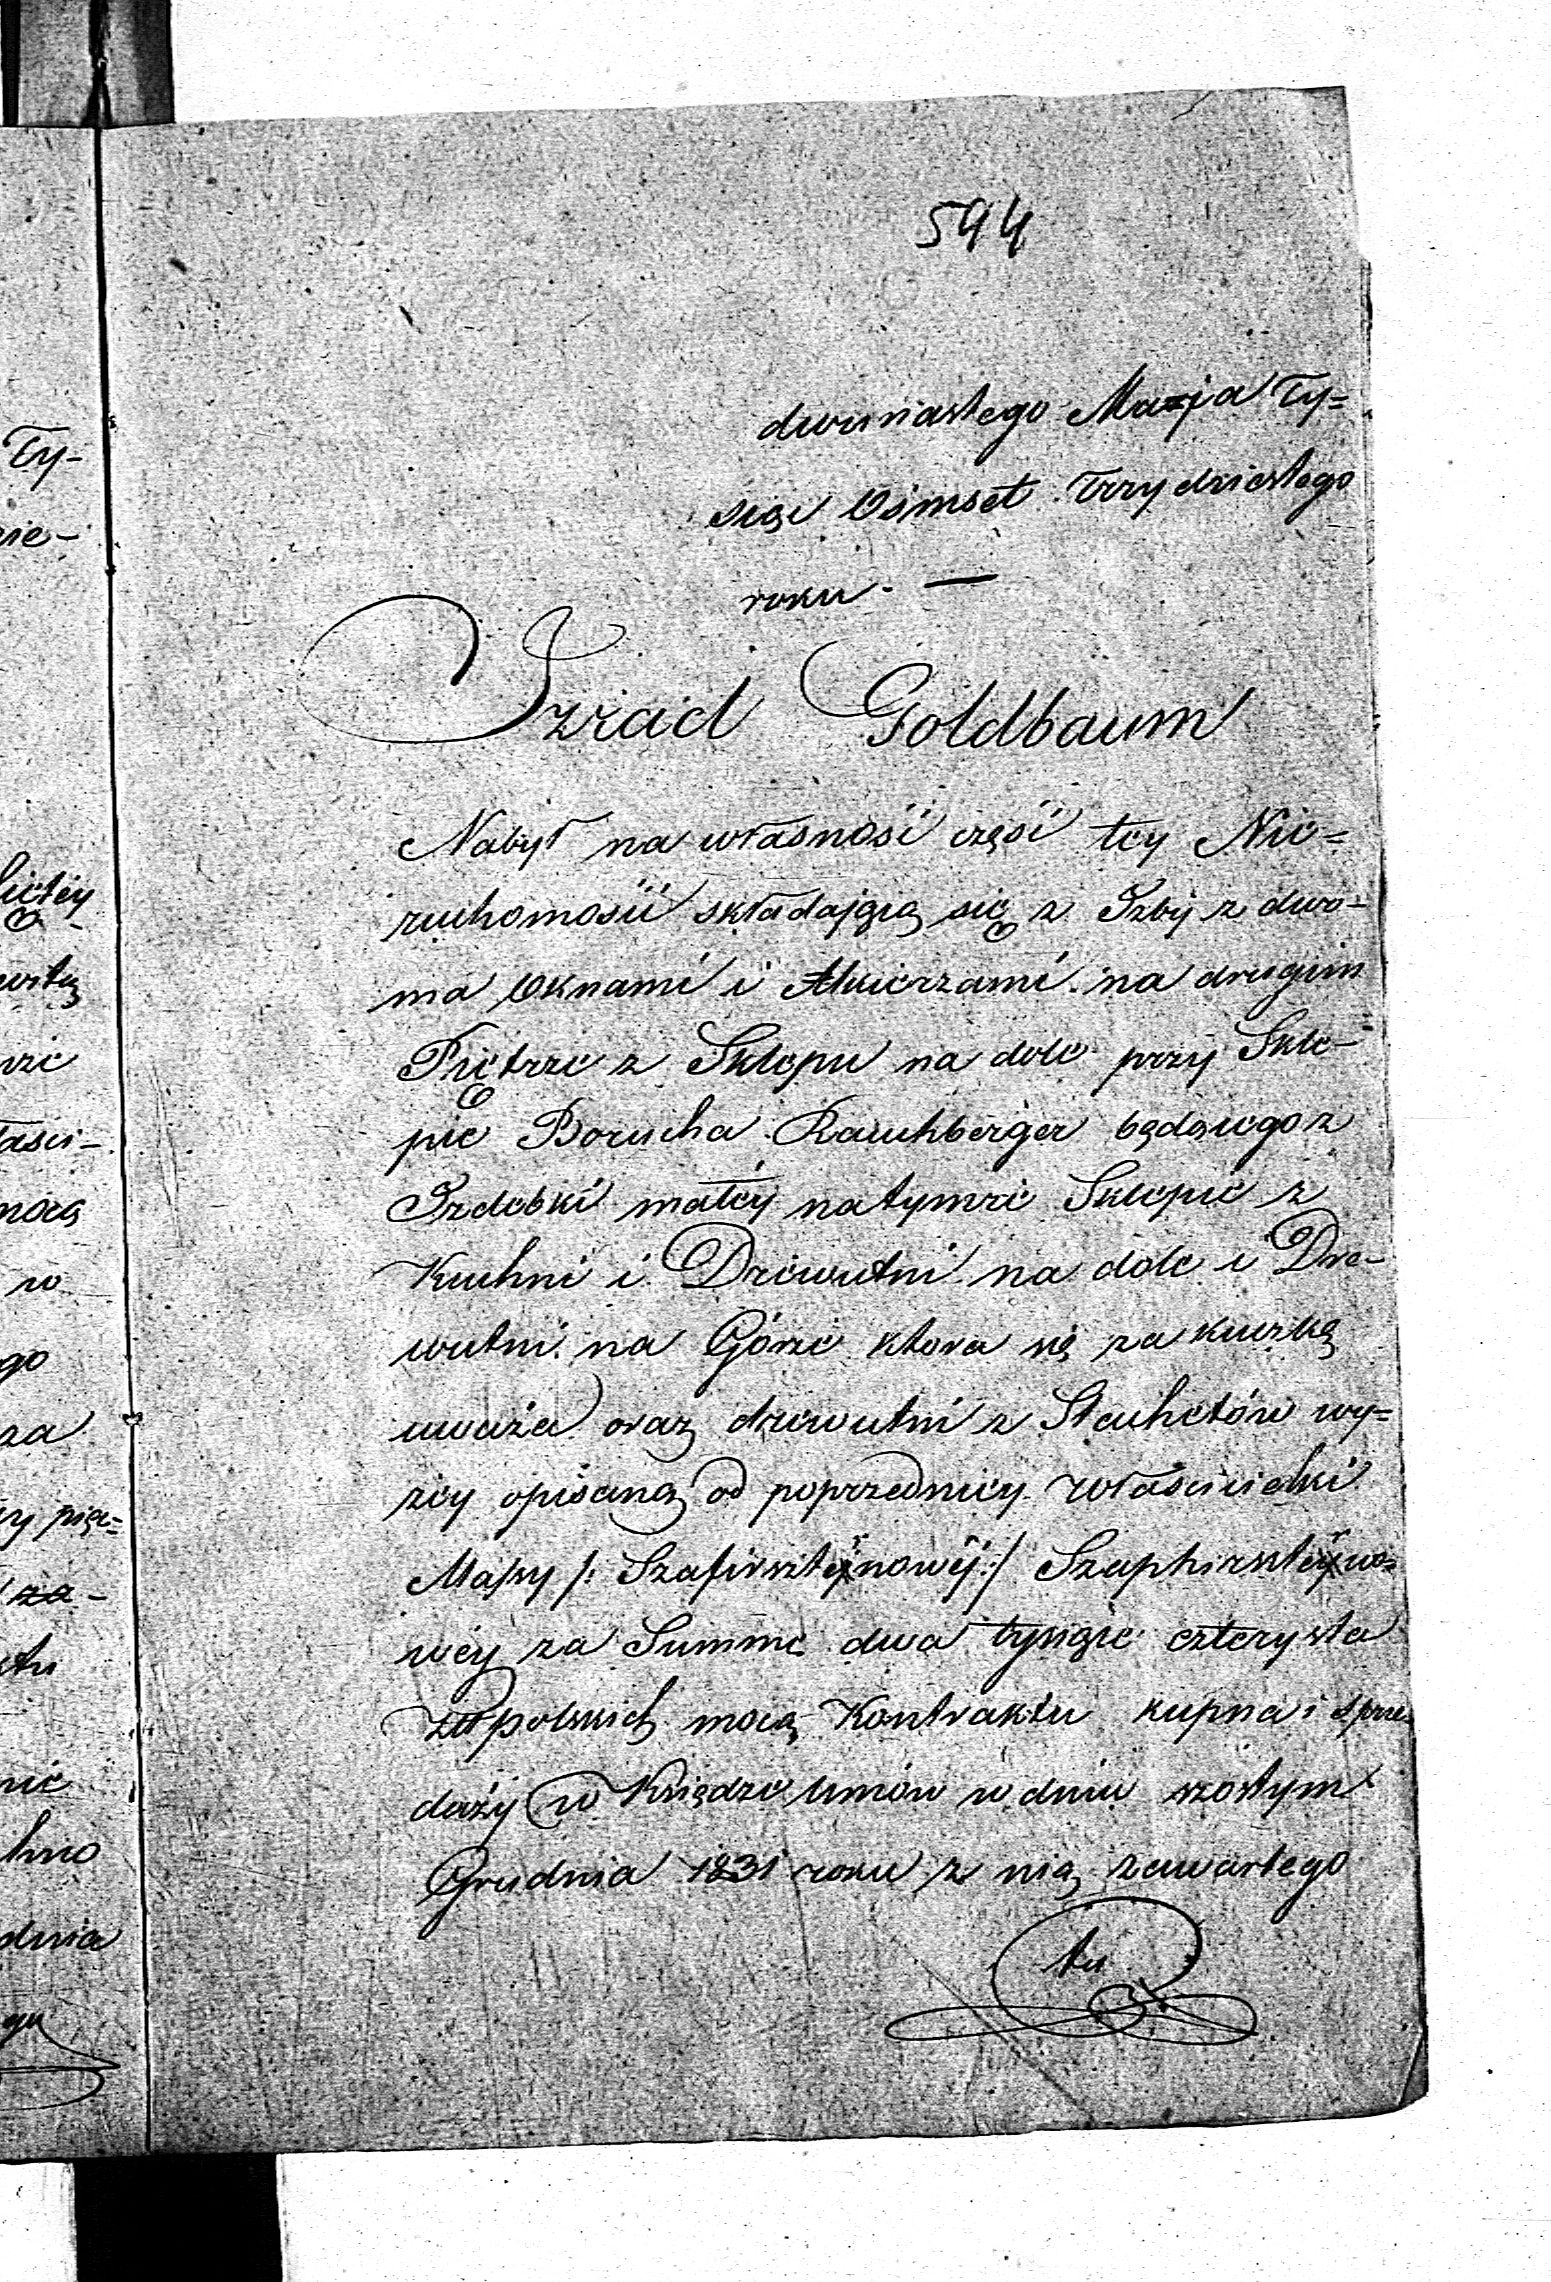 594
dwunastego Maja Ty=
siąc Ośmset Trzydziestego
roku. —
Izrael Goldbaum
Nabył na własność część tey Nie=
ruchomości składającą się z Izby z dwo-
ma Oknami i Alkierzami na drugim
Piętrze z Sklepu na dole przy Skle-
pie Borucha Rauchberger będącego z
Izdebki małey na tymże Sklepie z
Kuchni i Drewutni na dole i Dre-
wutni na Górze ktora się za kuczkę
uważa oraz drewutni z Stachetów wy=
zey opisaną od poprzedniey właścicielki
Massy /: Szafirsztynowéy :/ Szaphirsztey
wéy za Summę dwa tysiące czterysta
Złłpolskich mocą Kontraktu kupna i sprze
daży w Księdze Umów w dniu szóstym
Grudnia 1831 roku z nią zawartego
tu
Ty-
nie-
wże
łasci-
mocą
w
go
za
pięć=
za-
stu
nie
dnia